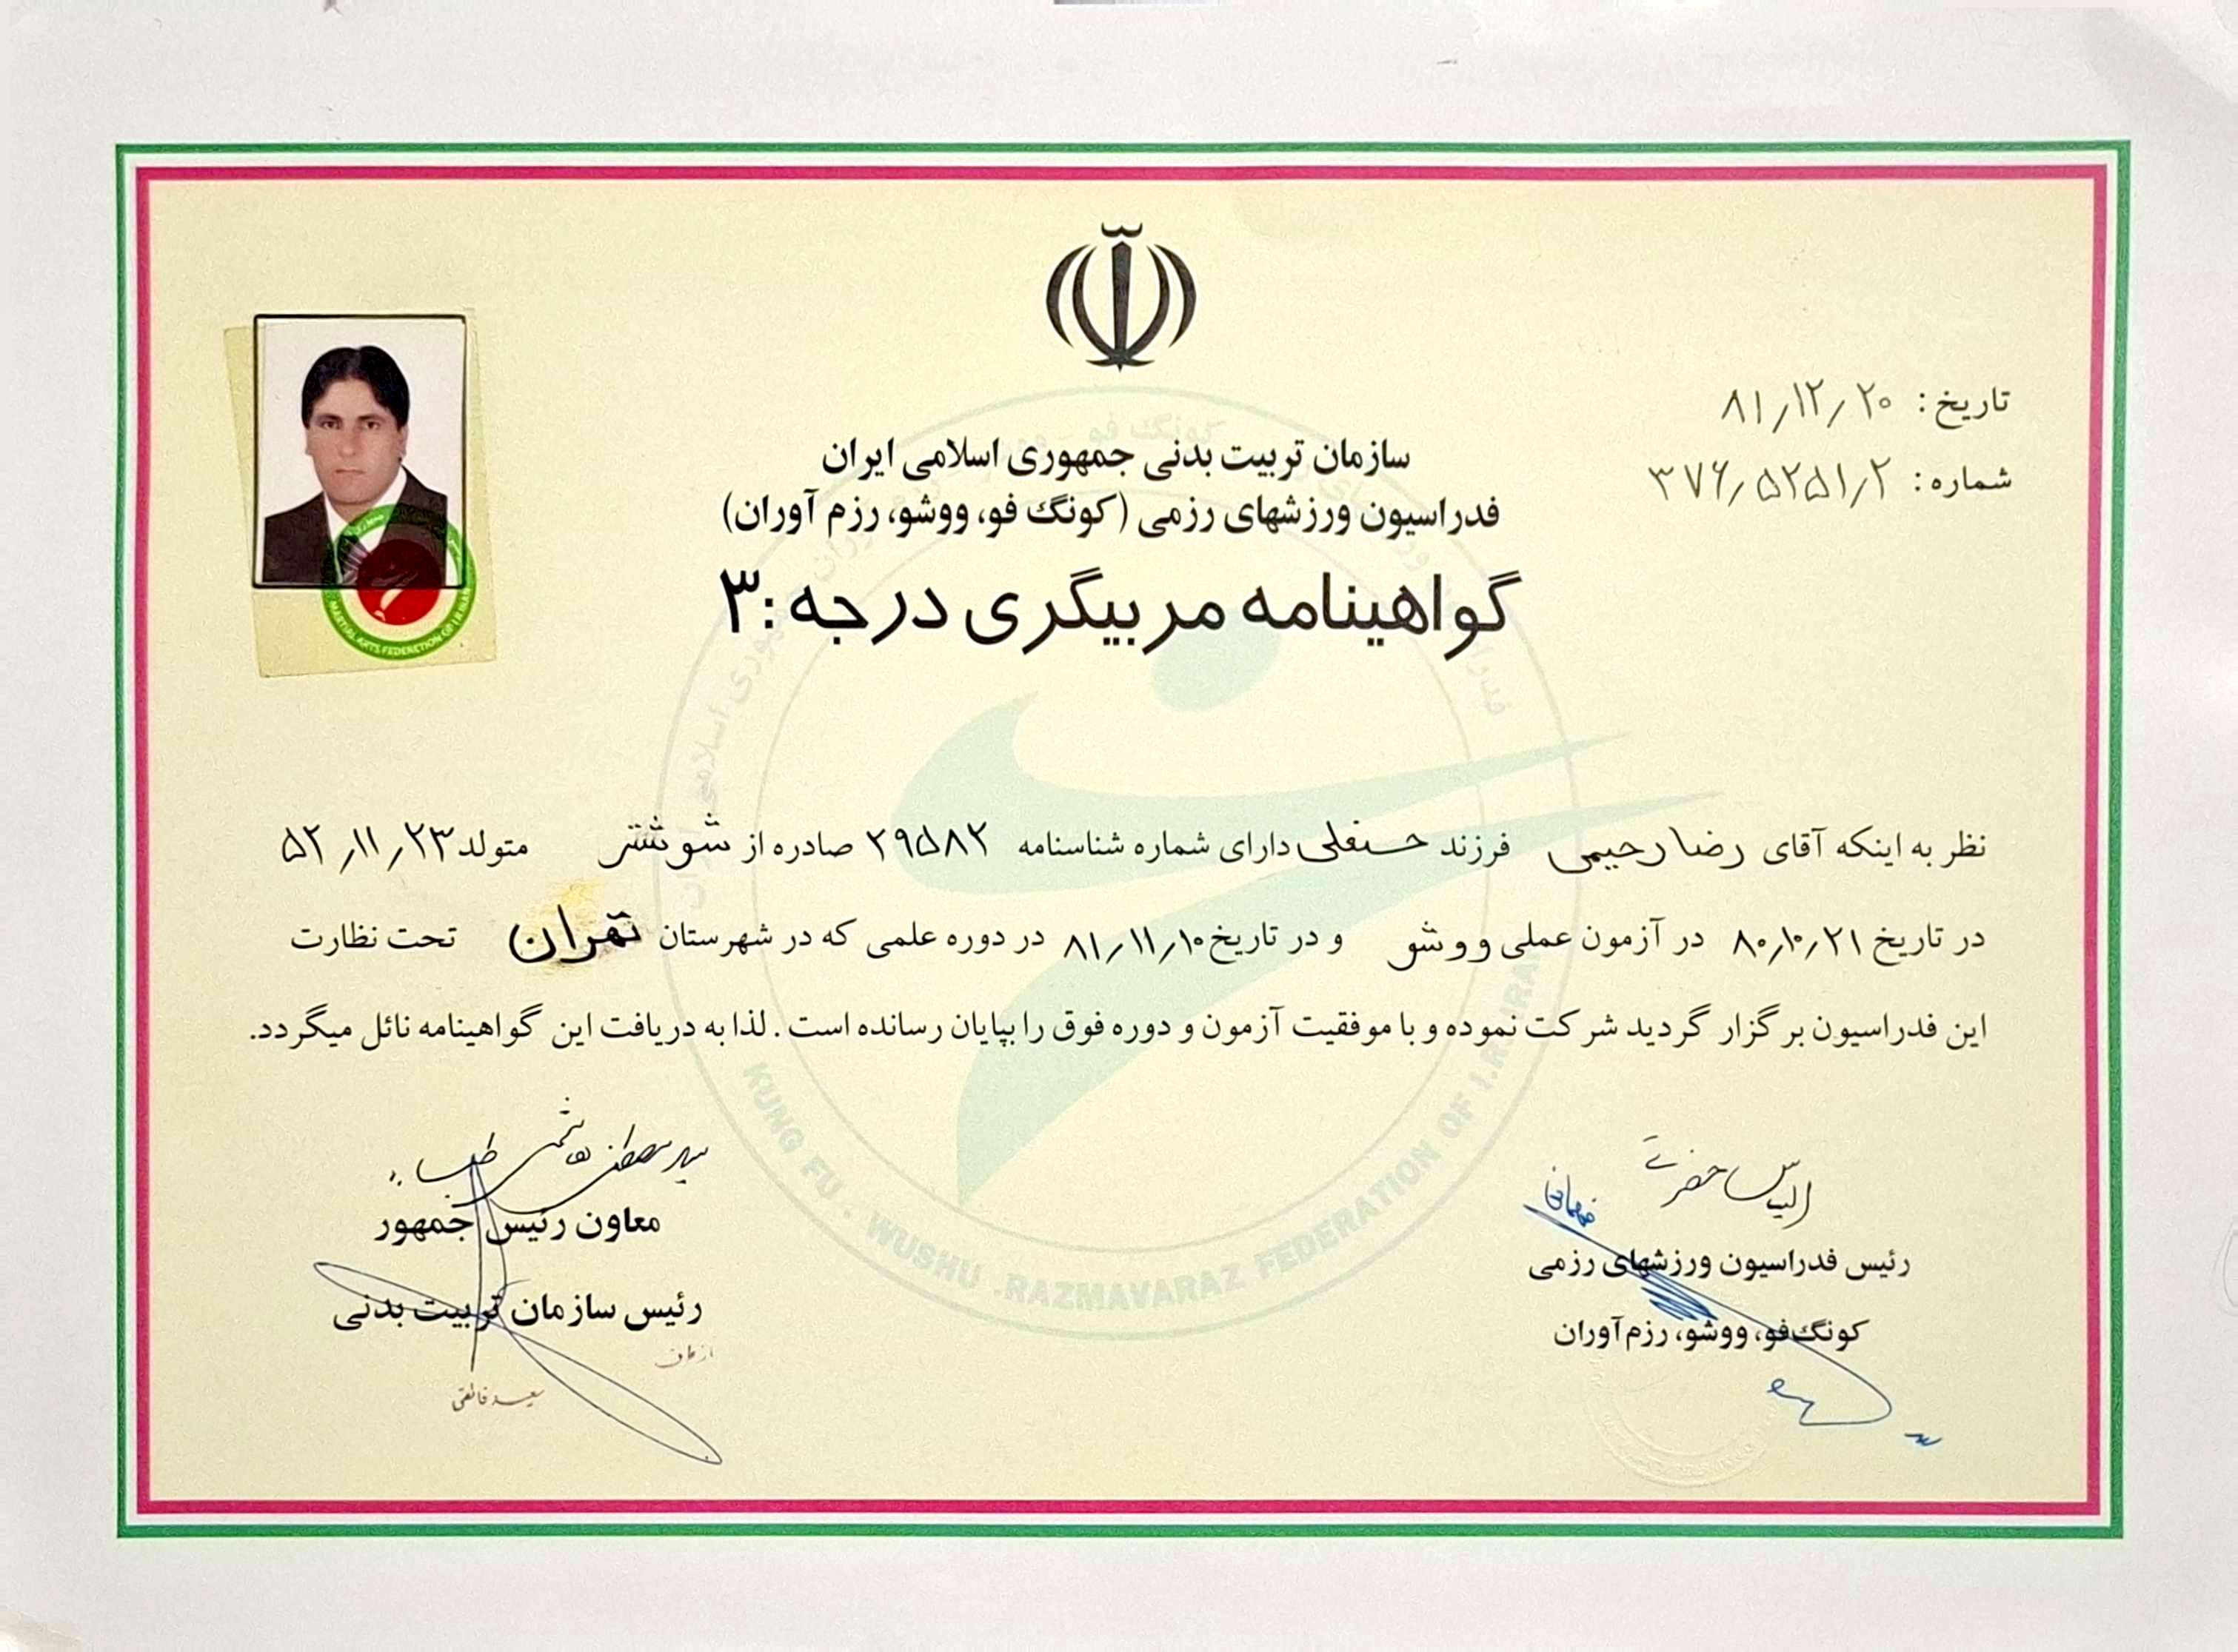 تاریخ: ۸۱٫۱۲٫۲۰
شماره: ۳۷۶٫۵۲۵۱٫۲
سازمان تربیت بدنی جمهوری اسلامی ایران
فدراسیون ورزشهای رزمی (کونگ فو، ووشو، رزم آوران)
گواهینامه مربیگری درجه :۳
نظر به اینکه آقای رضا رحیمی فرزند حسنعلی دارای شماره شناسنامه ۲۹۵۸۲ صادره از شوشتر متولد ۵۲٫۱۱٫۲۳
در تاریخ ۸۰٫۱۰٫۲۱ در آزمون عملی ووشو و در تاریخ ۸۱٫۱۱٫۱۰ در دوره علمی که در شهرستان تهران تحت نظارت
این فدراسیون برگزار گردید شرکت نموده و با موفقیت آزمون و دوره فوق را بپایان رسانده است. لذا به دریافت این گواهینامه نائل میگردد.
الیاس حضرتی
رئیس فدراسیون ورزشهای رزمی
کونگ‌فو، ووشو، رزم‌آوران
سید مصطفی هاشمی طبا
معاون رئیس جمهور
رئیس سازمان تربیت بدنی
از طرف
سعید فائقی
KUNG FU . WUSHU .RAZMAVARAZ FEDERATION OF I.R.IRAN
MARTIAL ARTS FEDERETION OF I.R.IRAN